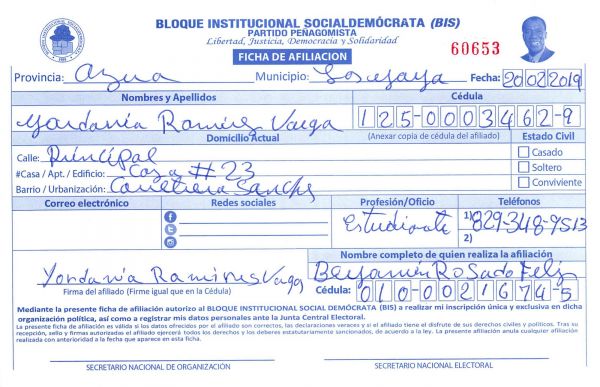 BLOQUE INSTITUCIONAL SOCIALDEMÓCRATA (BIS)
PARTIDO PEÑAGOMISTA
Libertad, Justicia, Democracia y Solidaridad
FICHA DE AFILIACION
60653
Provincia: Azua Municipio: Fecha: 20022019
Nombres y Apellidos Cédula
Yordanía Ramírez Varga 125-0003462-9
Domicilio Actual (Anexar copia de cédula del afiliado) Estado Civil
Calle: Principal
Casado
#Casa / Apt. / Edificio: Casa #23
Soltero
Barrio / Urbanización: Carretera Sanchez
Conviviente
Correo electrónico Redes sociales Profesión/Oficio Teléfonos
Estudiante 1) 829-348-9513
2)
Nombre completo de quien realiza la afiliación
Yordanía Ramires Vargas Benjamín Rosado Feliz
Firma del afiliado (Firme igual que en la Cédula) Cédula: 010-0021674-5
Mediante la presente ficha de afiliación autorizo al BLOQUE INSTITUCIONAL SOCIAL DEMÓCRATA (BIS) a realizar mi inscripción única y exclusiva en dicha
organización política, así como a registrar mis datos personales ante la Junta Central Electoral.
La presente ficha de afiliación es válida si los datos ofrecidos por el afiliado son correctos, las declaraciones veraces y si el afiliado tiene el disfrute de sus derechos civiles y políticos. Tras su
recepción, sello y firmas autorizadas el afiliado ejercerá todos los derechos y los deberes estatutariamente sancionados, de acuerdo a la ley. La presente afiliación anula cualquier afiliación
realizada con anterioridad a la fecha que aparece en esta ficha.
SECRETARIO NACIONAL DE ORGANIZACIÓN SECRETARIO NACIONAL ELECTORAL